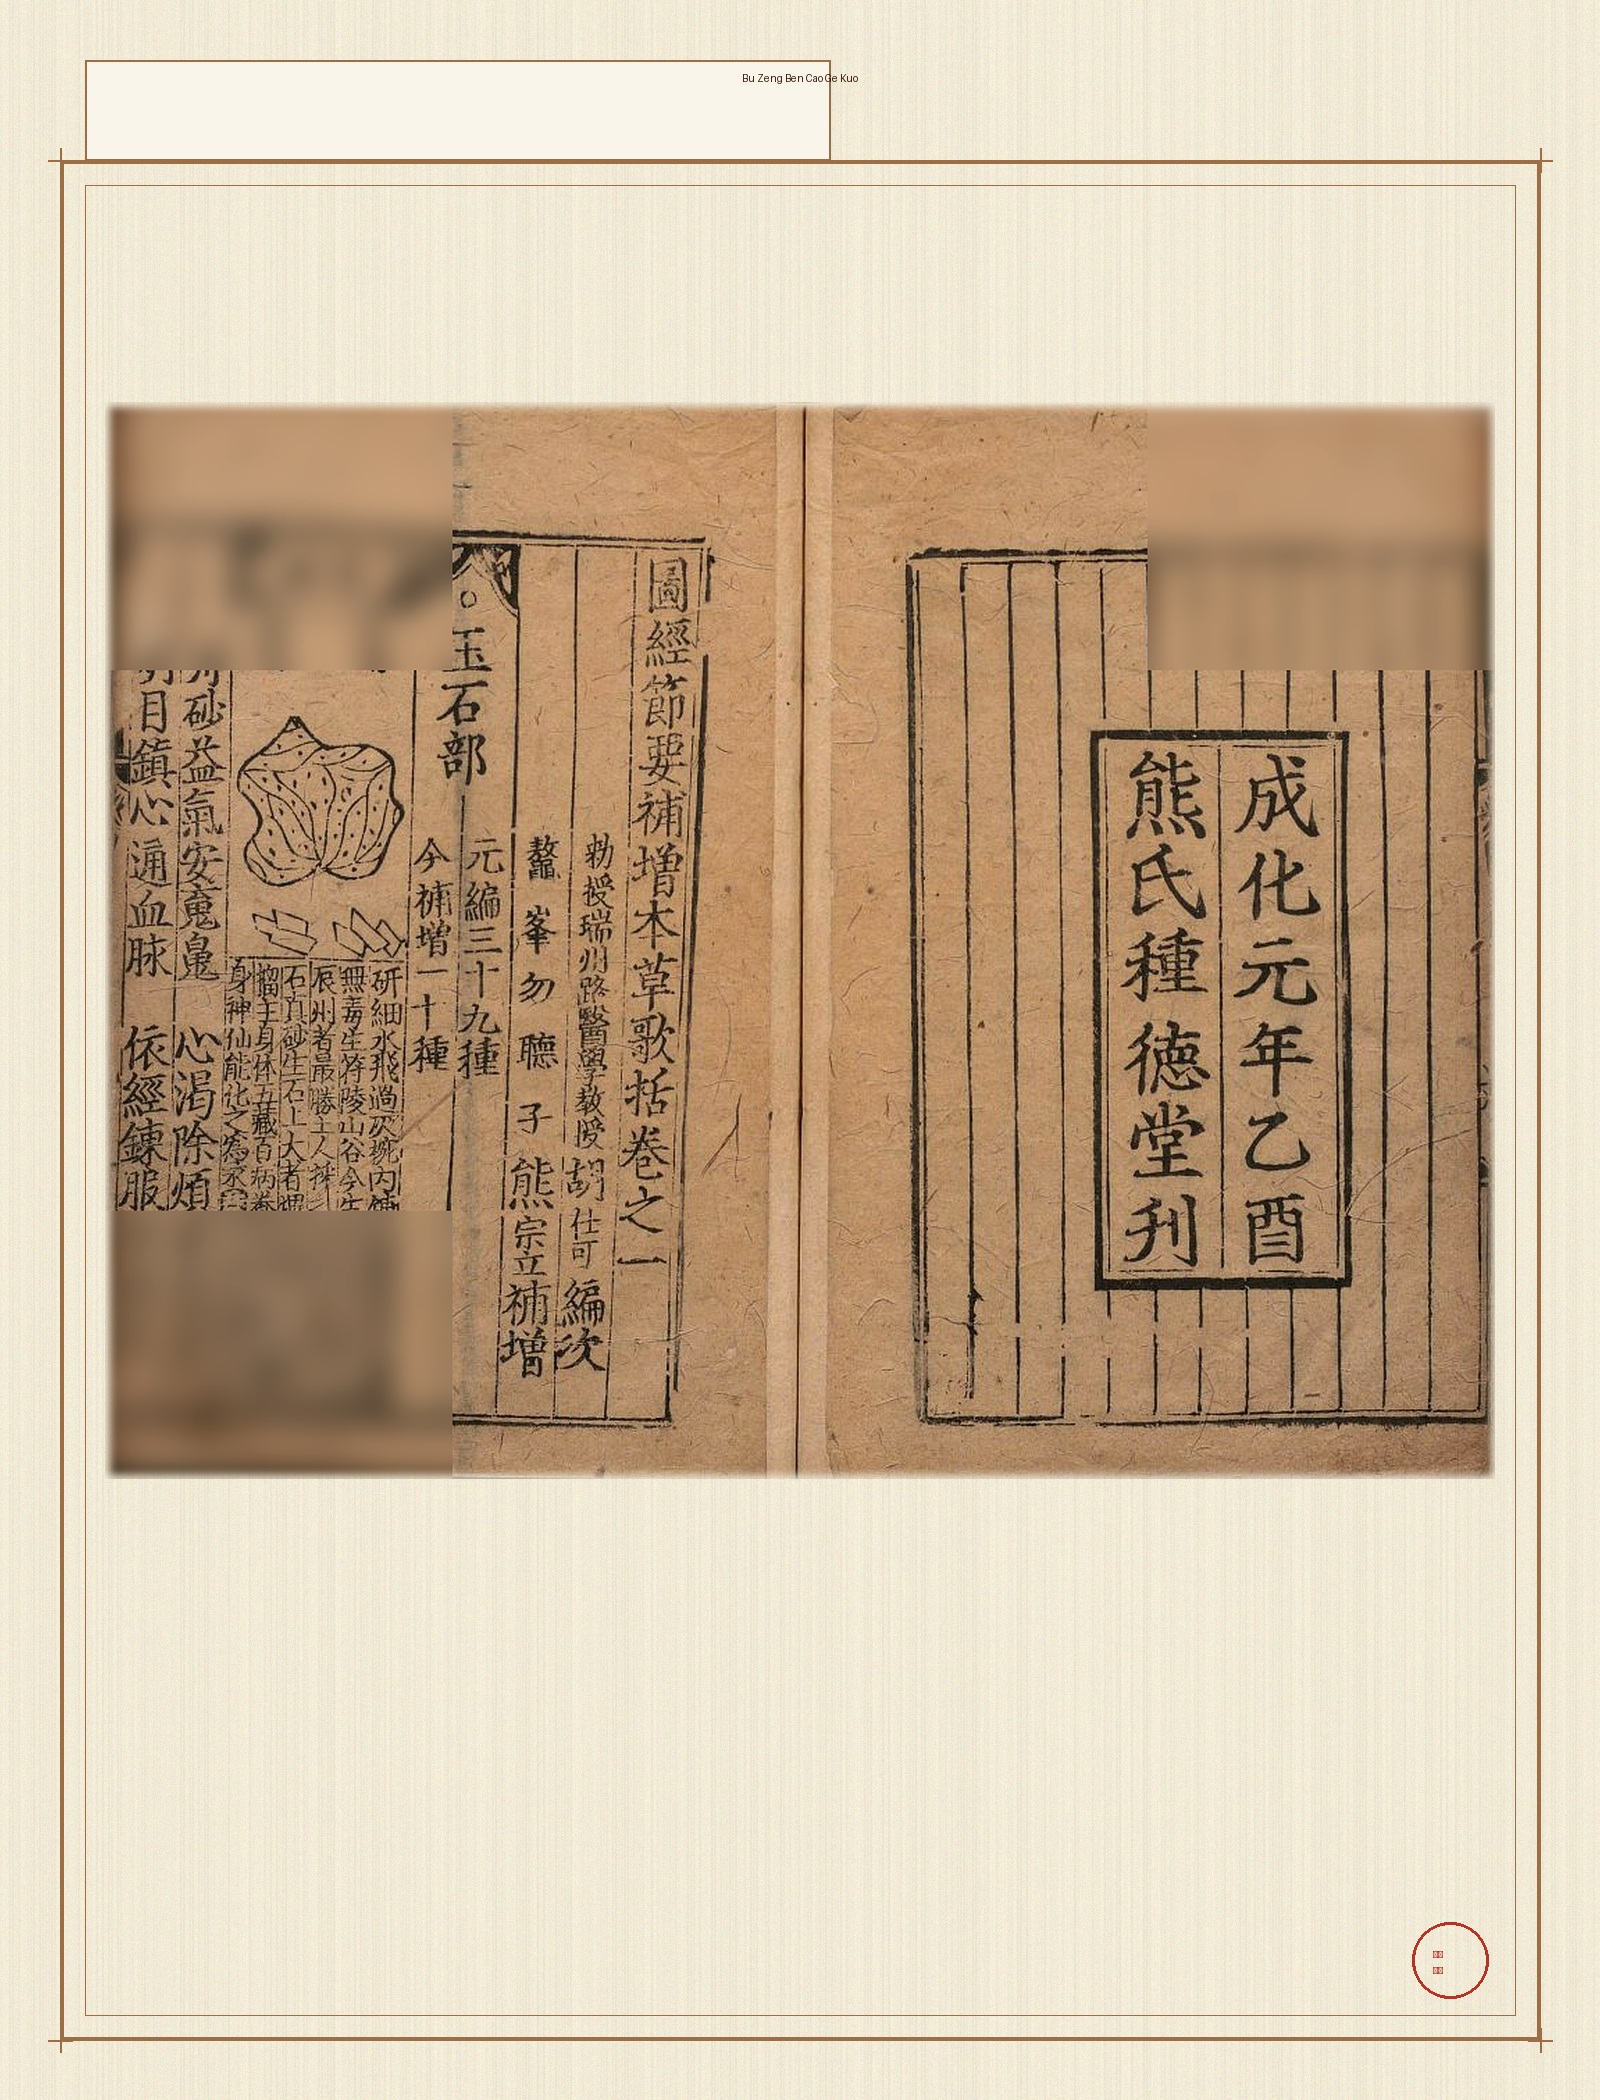 Bu Zeng Ben Cao Ge Kuo
成化元年乙酉
熊氏種德堂刋
圖經節要補增本草歌括卷之一
勑授瑞州路醫學教授胡仕可編次
鼇峯勿聽子熊宗立補增
玉石部
元編三十九種
今補增一十種
研細水飛過灰埦內
無毒生符陵山谷今生
辰州者最勝土人採
石真砂生石上大者
主身体五藏百病養
身神仙能化之為汞
砂益氣安魂魄 心渴除煩
目鎮心通血脉 依經鍊服